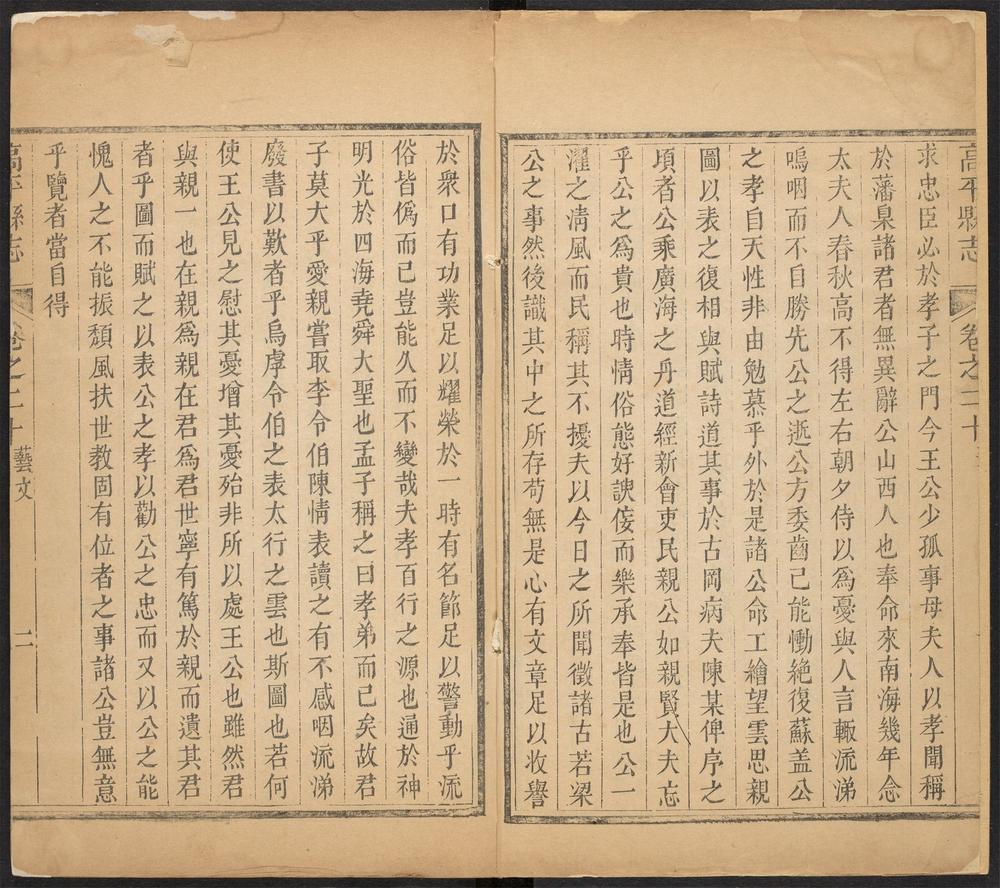 高平縣志
卷之二十
求忠臣必於孝子之門今王公少孤事母夫人以孝聞稱
於藩臬諸君者無異辭公山西人也奉命來南海幾年念
太夫人春秋高不得左右朝夕侍以爲憂與人言輙流涕
嗚咽而不自勝先公之逝公方委齒已能慟絶復蘇盖公
之孝自天性非由勉慕乎外於是諸公命工繪望雲思親
圖以表之復相與賦詩道其事於古岡病夫陳某俾序之
頃者公乘廣海之丹道經新會吏民親公如親賢大夫忘
乎公之為貴也時情俗態好諛侫而樂承奉皆是也公一
濯之清風而民稱其不擾夫以今日之所聞徵諸古若梁
公之事然後識其中之所存苟無是心有文章足以收譽
於衆口有功業足以耀榮於一時有名節足以警動乎流
俗皆僞而已豈能久而不變哉夫孝百行之源也通於神
明光於四海堯舜大聖也孟子稱之曰孝弟而已矣故君
子莫大乎愛親嘗取李令伯陳情表讀之有不感咽流涕
廢書以歎者乎烏虖令伯之表太行之雲也斯圖也若何
使王公見之慰其憂增其憂殆非所以處王公也雖然君
與親一也在親爲親在君爲君世寧有篤於親而遺其君
者乎圖而賦之以表公之孝以勸公之忠而又以公之能
愧人之不能振頽風扶世教固有位者之事諸公豈無意
乎覽者當自得
高平縣志
卷之二十 藝文
二